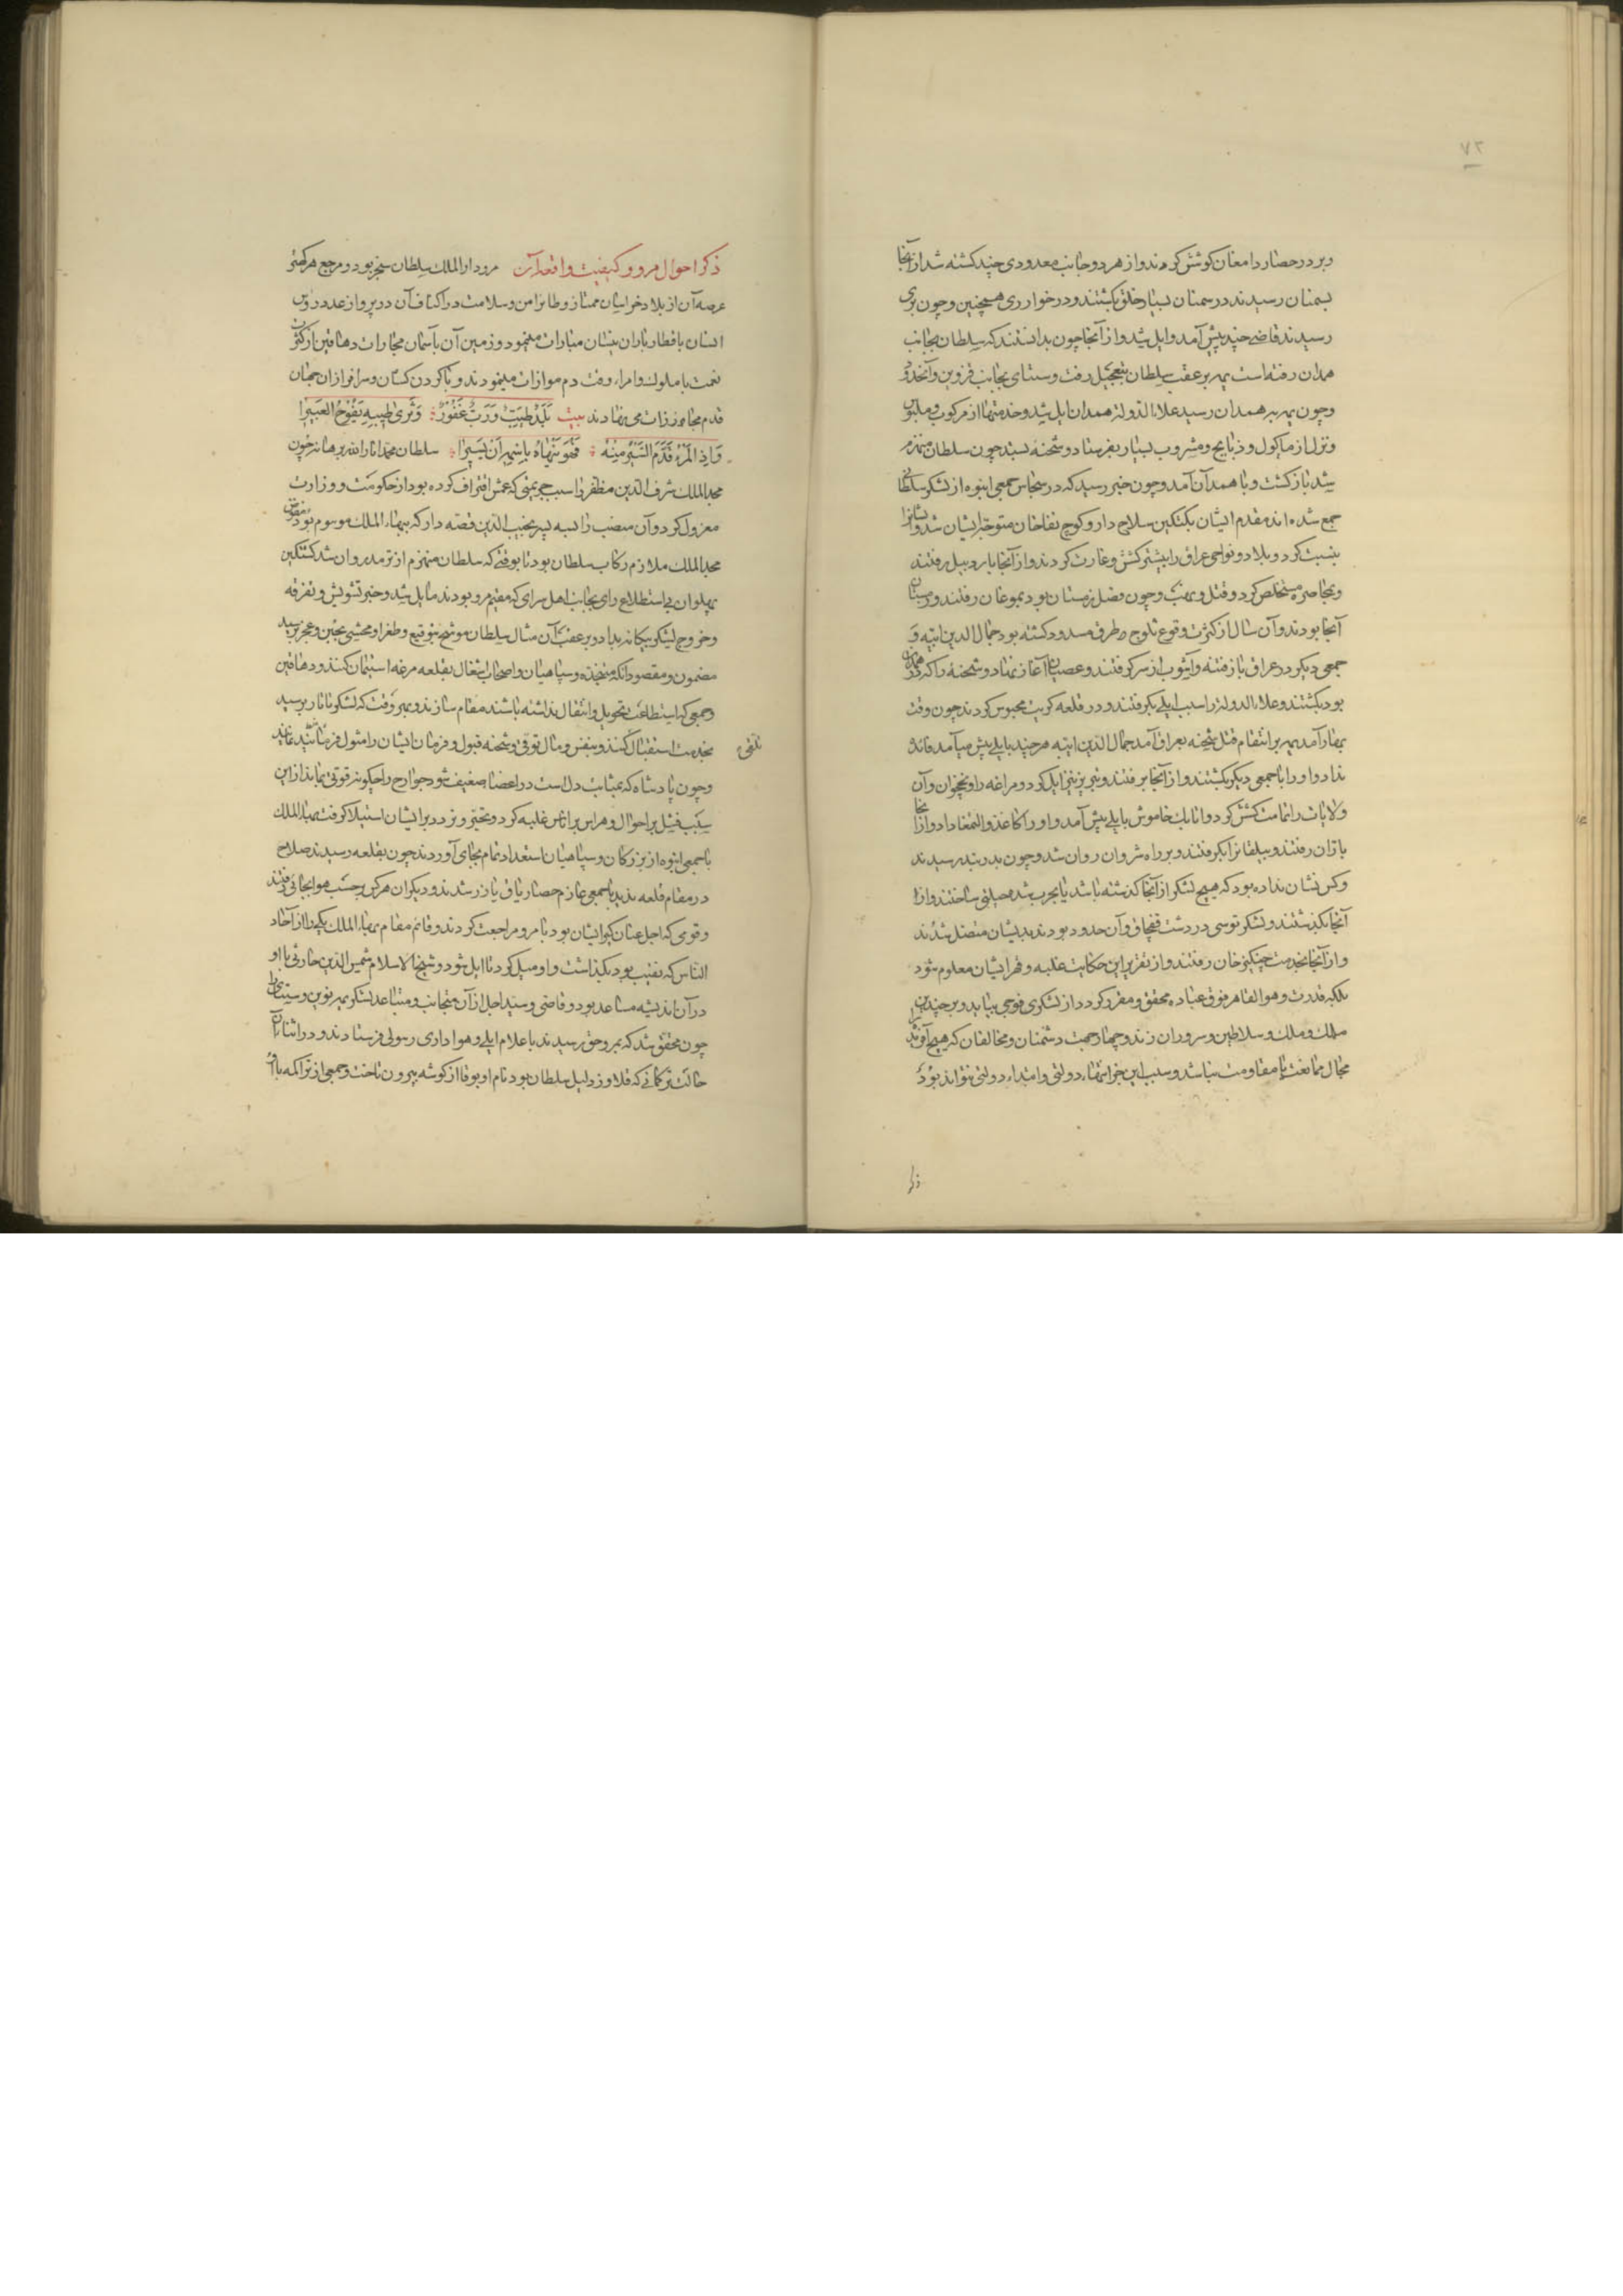 ۷۳
و بر در حصار دامغان کوشش کردند و از هر دو جانب معدودی چند کشته شد از آنجا
بسمنان رسیدند در سمنان بسیار خلق بکشتند و در خوار ری همچنین و چون بری
رسیدند قاضی چند پیش آمد و ایل شد و از آنجا چون بدانستند که سلطان بجانب
همدان رفته است یمه بر عقب سلطان بتعجیل رفت و سبتای بجانب قزوین و آنحدود
و چون یمه به همدان رسید علاء الدوله همدان ایل شد و خدمتها از مرکوب و ملبوس
و نزل از ماکول و ذبایح و مشروب بسیار بفرستاد و شحنه بستد چون سلطان منهزم
شد بازکشت و با همدان آمد و چون خبر رسید که در سجاس جمعی انبوه از لشکر سلطانی
جمع شده اند مقدم ایشان بکتکین سلاح دار و کوچ بغا خان متوجه ایشان شد و ایشانرا
بنیست کرد و بلاد و نواحی عراق را بیشتر کشش و غارت کردند و از آنجا باردبیل رفتند
و بمحاصره مستخلص کرد و قتل و نهب و چون فصل زمستان بود بموغان رفتند و زمستان
آنجا بودند و آن سال از کثرت وقوع ثلوج طرق مسدود کشته بود جمال الدین ایبه و
جمعی دیکر در عراق باز فتنه و آشوب از سر کرفتند و عصیان آغاز نهاد و شحنه را که در همدان
بود بکشتند و علاء الدوله را سبب ایلی بکرفتند و در قلعه کریت محبوس کردند چون وقت
بهار آمد یمه بر انتقام قتل شحنه بعراق آمد جمال الدین ایبه هرچند بایلی پیش میآمد فائده
نداد و او را با جمعی دیکر بکشتند و از آنجا برفتند و تبریز نیز ایل کرد و مراغه را و نخجوان و آن
ولایات را تمامت کشش کرد و اتابک خاموش بایلی پیش آمد و او را کاغذ و التمغا داد و از آنجا
باران رفتند و بیلقانرا بکرفتند و بر راه شروان روان شد و چون بدربند رسیدند
و کس نشان نداده بود که هیچ لشکر از آنجا کذشته باشد یا بحرب شد حیلتی ساختند و از
آنجا بکذشتند و لشکر توسی در دشت قفچاق و آن حدود بودند بدیشان متصل شدند
و از آنجا بخدمت چنکیز خان رفتند و از تقریر این حکایت غلبه و قهر ایشان معلوم شود
بلکه قدرت و هو القاهر فوق عباده محقق و مقرر کردد از لشکری فوجی بیاید و بر چندین
ملک و ملک و سلاطین و سروران زند و چهار جهت دشمنان و مخالفان که هیچ آفریده را
مجال ممانعت یا مقاومت نباشد و سبب این جز انتهاء دولتی و ابتداء دولتی نتواند بود
ذکر
ذکر احوال مرو و کیفیت واقعه آن مرو دار الملک سلطان سنجر بود و مرجع هر کهتر
عرصه آن از بلاد خراسان ممتاز و طائر امن و سلامت در اکناف آن در پرواز عدد رؤس
انسان با قطار باران نیسان مبارات مینمود و زمین آن با آسمان مجارات دهاقین از کثرت
نعمت با ملوک و امراء وقت دم موازات میزدند و با کردن کشان و سرافرازان جهان
قدم محاذات می نهادند بیت بلد طیب و رب غفور و ثری طیبه یفوح العبیرا
و اذا المرء قدم السیر منه فهو ینهاه باسمه ان یسیرا سلطان محمد انار الله برهانه چون
مجیر الملک شرف الدین مظفر را سبب جریمتی که عمش اقتراف کرده بود از حکومت و وزارت
معزول کرد و آن منصب را به پسر نجیب الدین قصه دار که ببهاء الملک موسوم بود مفوض
مجیر الملک ملازم رکاب سلطان بود تا بوقتی که سلطان منهزم از ترمد روان شد کشتکین
پهلوان بی استطلاع رای بجانب اهل سرای که مقیم مرو بودند مایل شد و خبر تشویش و تفرقه
و خروج لشکر بیکانه بداد و بر عقب آن مثال سلطان موشح بتوقیع و طغرا و محشی بجبن و عجز برسید
مضمون و مقصود آنک متجنده و سپاهیان و اصحاب اشغال بقلعه مرغه استیمان کنند و دهاقین
و جمعی که استطاعت تحویل و انتقال نداشته باشند مقام سازند و بهر وقت که لشکر تاتار برسد
بخدمت استقبال کنند و بنفس و مال توقی و شحنه قبول و فرمان ایشان را مثول
تلقی
و چون پادشاه که بمثابت دل است در اعضا ضعیف شود جوارح را چکونه قوتی بماند از این
سبب فشل بر احوال و هراس بر اناس غلبه کرد و تحیر و تردد بر ایشان استیلا کرفت بهاء الملک
با جمعی انبوه از بزرکان و سپاهیان استعداد تمام بجای آوردند چون بقلعه رسیدند صلاح
در مقام قلعه ندید با جمعی عازم حصار تاق یازر شدند و دیکران هر کس بر حسب هوا بجائی رفتند
و قومی که اجل عنان کیر ایشان بود با مرو مراجعت کردند و قائم مقام بهاء الملک یکی را از آحاد
الناس که نقیب بود بکذاشت و او میل کرد تا ایل شود و شیخ الاسلام شمس الدین حارثی با او
در آن اندیشه مساعد بود و قاضی و سید اجل از آن متجانب و متباعد لشکر یمه نوین و سبتای را
چون محقق شد که بمروجق رسیدند باعلام ایلی و هواداری رسولی فرستادند و در اثناء آن
حالت ترکمانی که قلاوز و دلیل سلطان بود نام او بوقا از کوشه بیرون تاخت و جمعی از تراکمه با او